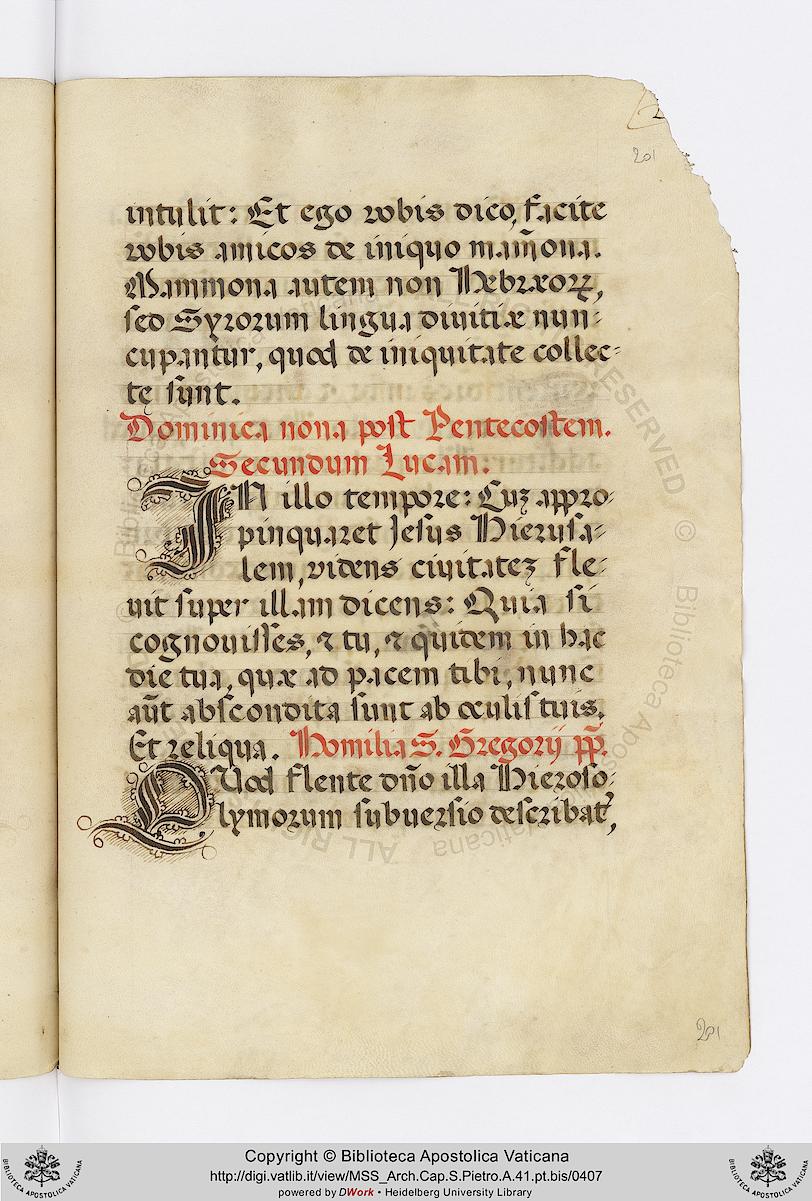 201
intulit: Et ego vobis dico, facite
vobis amicos de iniquo mam̃ona.
Mammona autem non Hebræorꝝ,
sed Syrorum lingua diuitiæ nun-
cupantur, quod de iniquitate collec-
tę sunt.
Dominica nona post Pentecostem.
Secundum Lucam.
IN illo tempore: Cuʒ appro-
pinquaret Jesus Hierusa-
lem, videns ciuitateʒ fle-
uit super illam dicens: Quia si
cognouisses, & tu, & quidem in hac
die tua, quæ ad pacem tibi, nunc
aũt abscondita sunt ab oculis tuis.
Et reliqua. Homilia S. Gregorij pp̃.
QUod flente dño illa Hieroso-
lymorum subuersio describat᷑,
201
Copyright © Biblioteca Apostolica Vaticana
http://digi.vatlib.it/view/MSS_Arch.Cap.S.Pietro.A.41.pt.bis/0407
powered by DWork • Heidelberg University Library
BIBLIOTECA APOSTOLICA VATICANA
BIBLIOTECA APOSTOLICA VATICANA